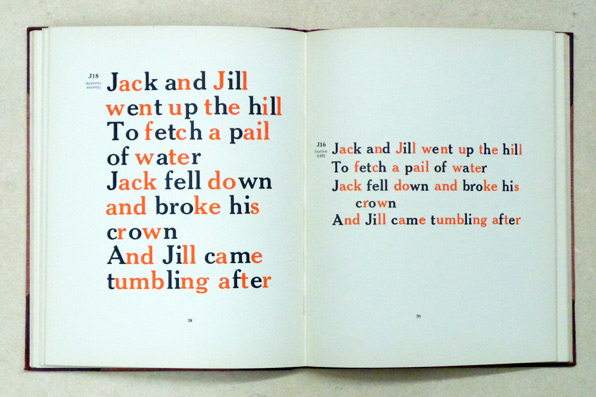 J18
Jack and Jill
went up the hill
To fetch a pail
of water
Jack fell down
and broke his
crown
And Jill came
tumbling after
J16
Jack and Jill went up the hill
To fetch a pail of water
Jack fell down and broke his
crown
And Jill came tumbling after